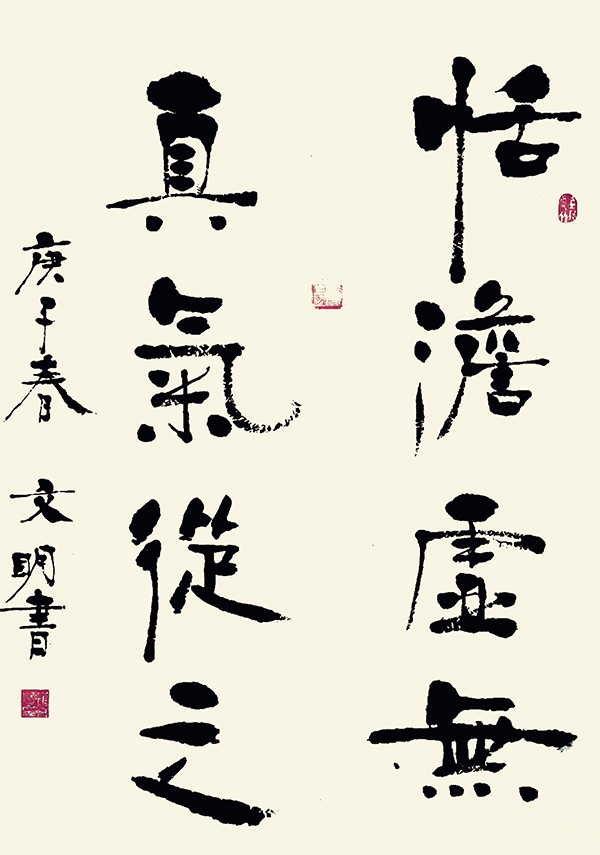 恬澹虛無
真氣從之
庚子春 文明書